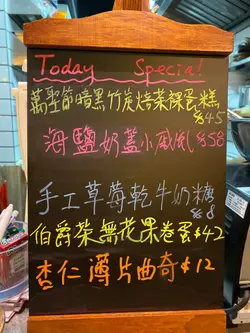 Today Special
萬聖節暗黑竹炭焙茶裸蛋糕
$45
海鹽奶蓋小戚風$58
手工草莓乾牛奶糖
$8
伯爵茶無花果卷蛋$42
杏仁薄片曲奇$12